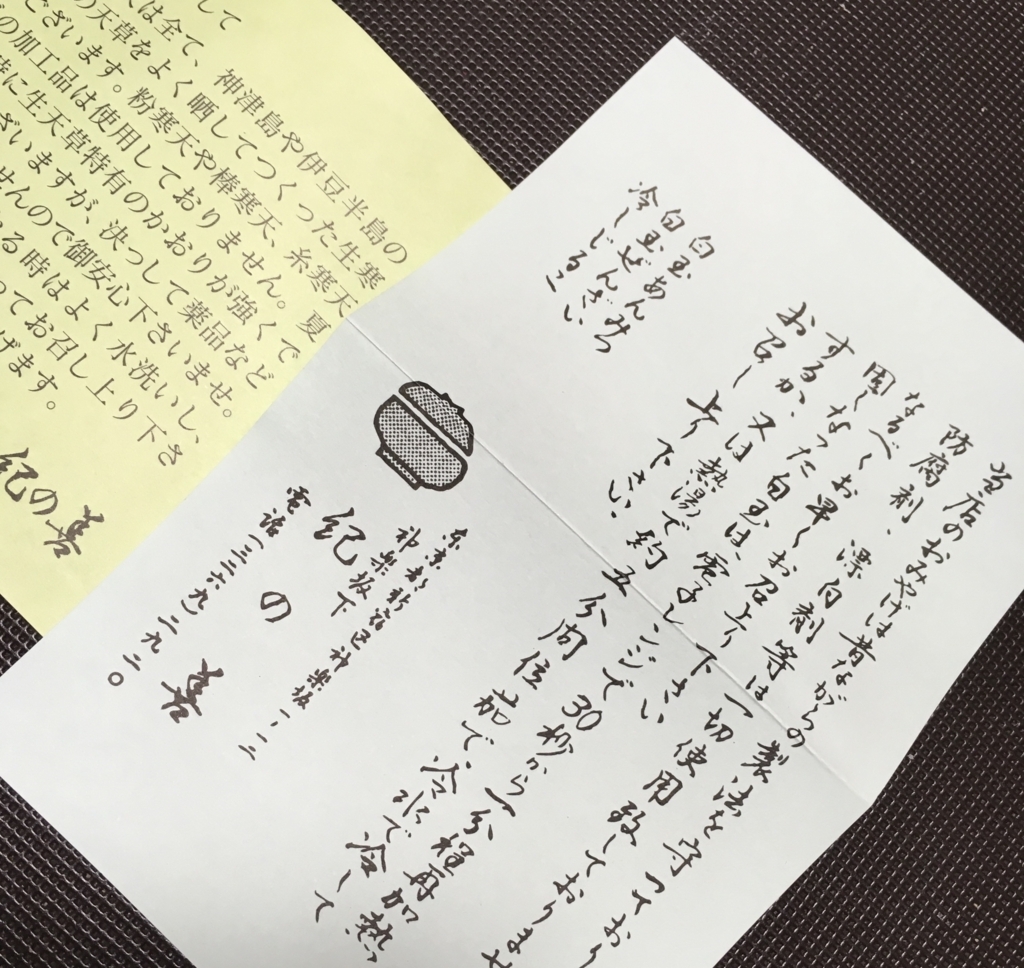 当店のおみやげは昔ながらの製法を守っており
防腐剤・漂白剤等は一切使用致しておりませ
なるべくお早くお召上り下さい
固くなった白玉は、電子レンジで30秒から一分程再加熱
するか、又は熱湯で約五分間位茹で、冷水で冷して
お召し上り下さい。
白玉あんみつ
白玉ぜんざい
冷しじるこ
東京都新宿区神楽坂一ノ一二
神楽坂下
紀の善
電話(三二六九)二九二〇
して
は全て、神津島や伊豆半島の
の天草をよく晒してつくった生寒
ございます。粉寒天や棒寒天、糸寒天
の加工品は使用しておりません。夏
に生天草特有のかおりが強くで
ざいますが、決っして薬品など
せんので御安心下さいませ。
る時はよく水洗いし、
ってお召し上り下さ
げます。
紀の善